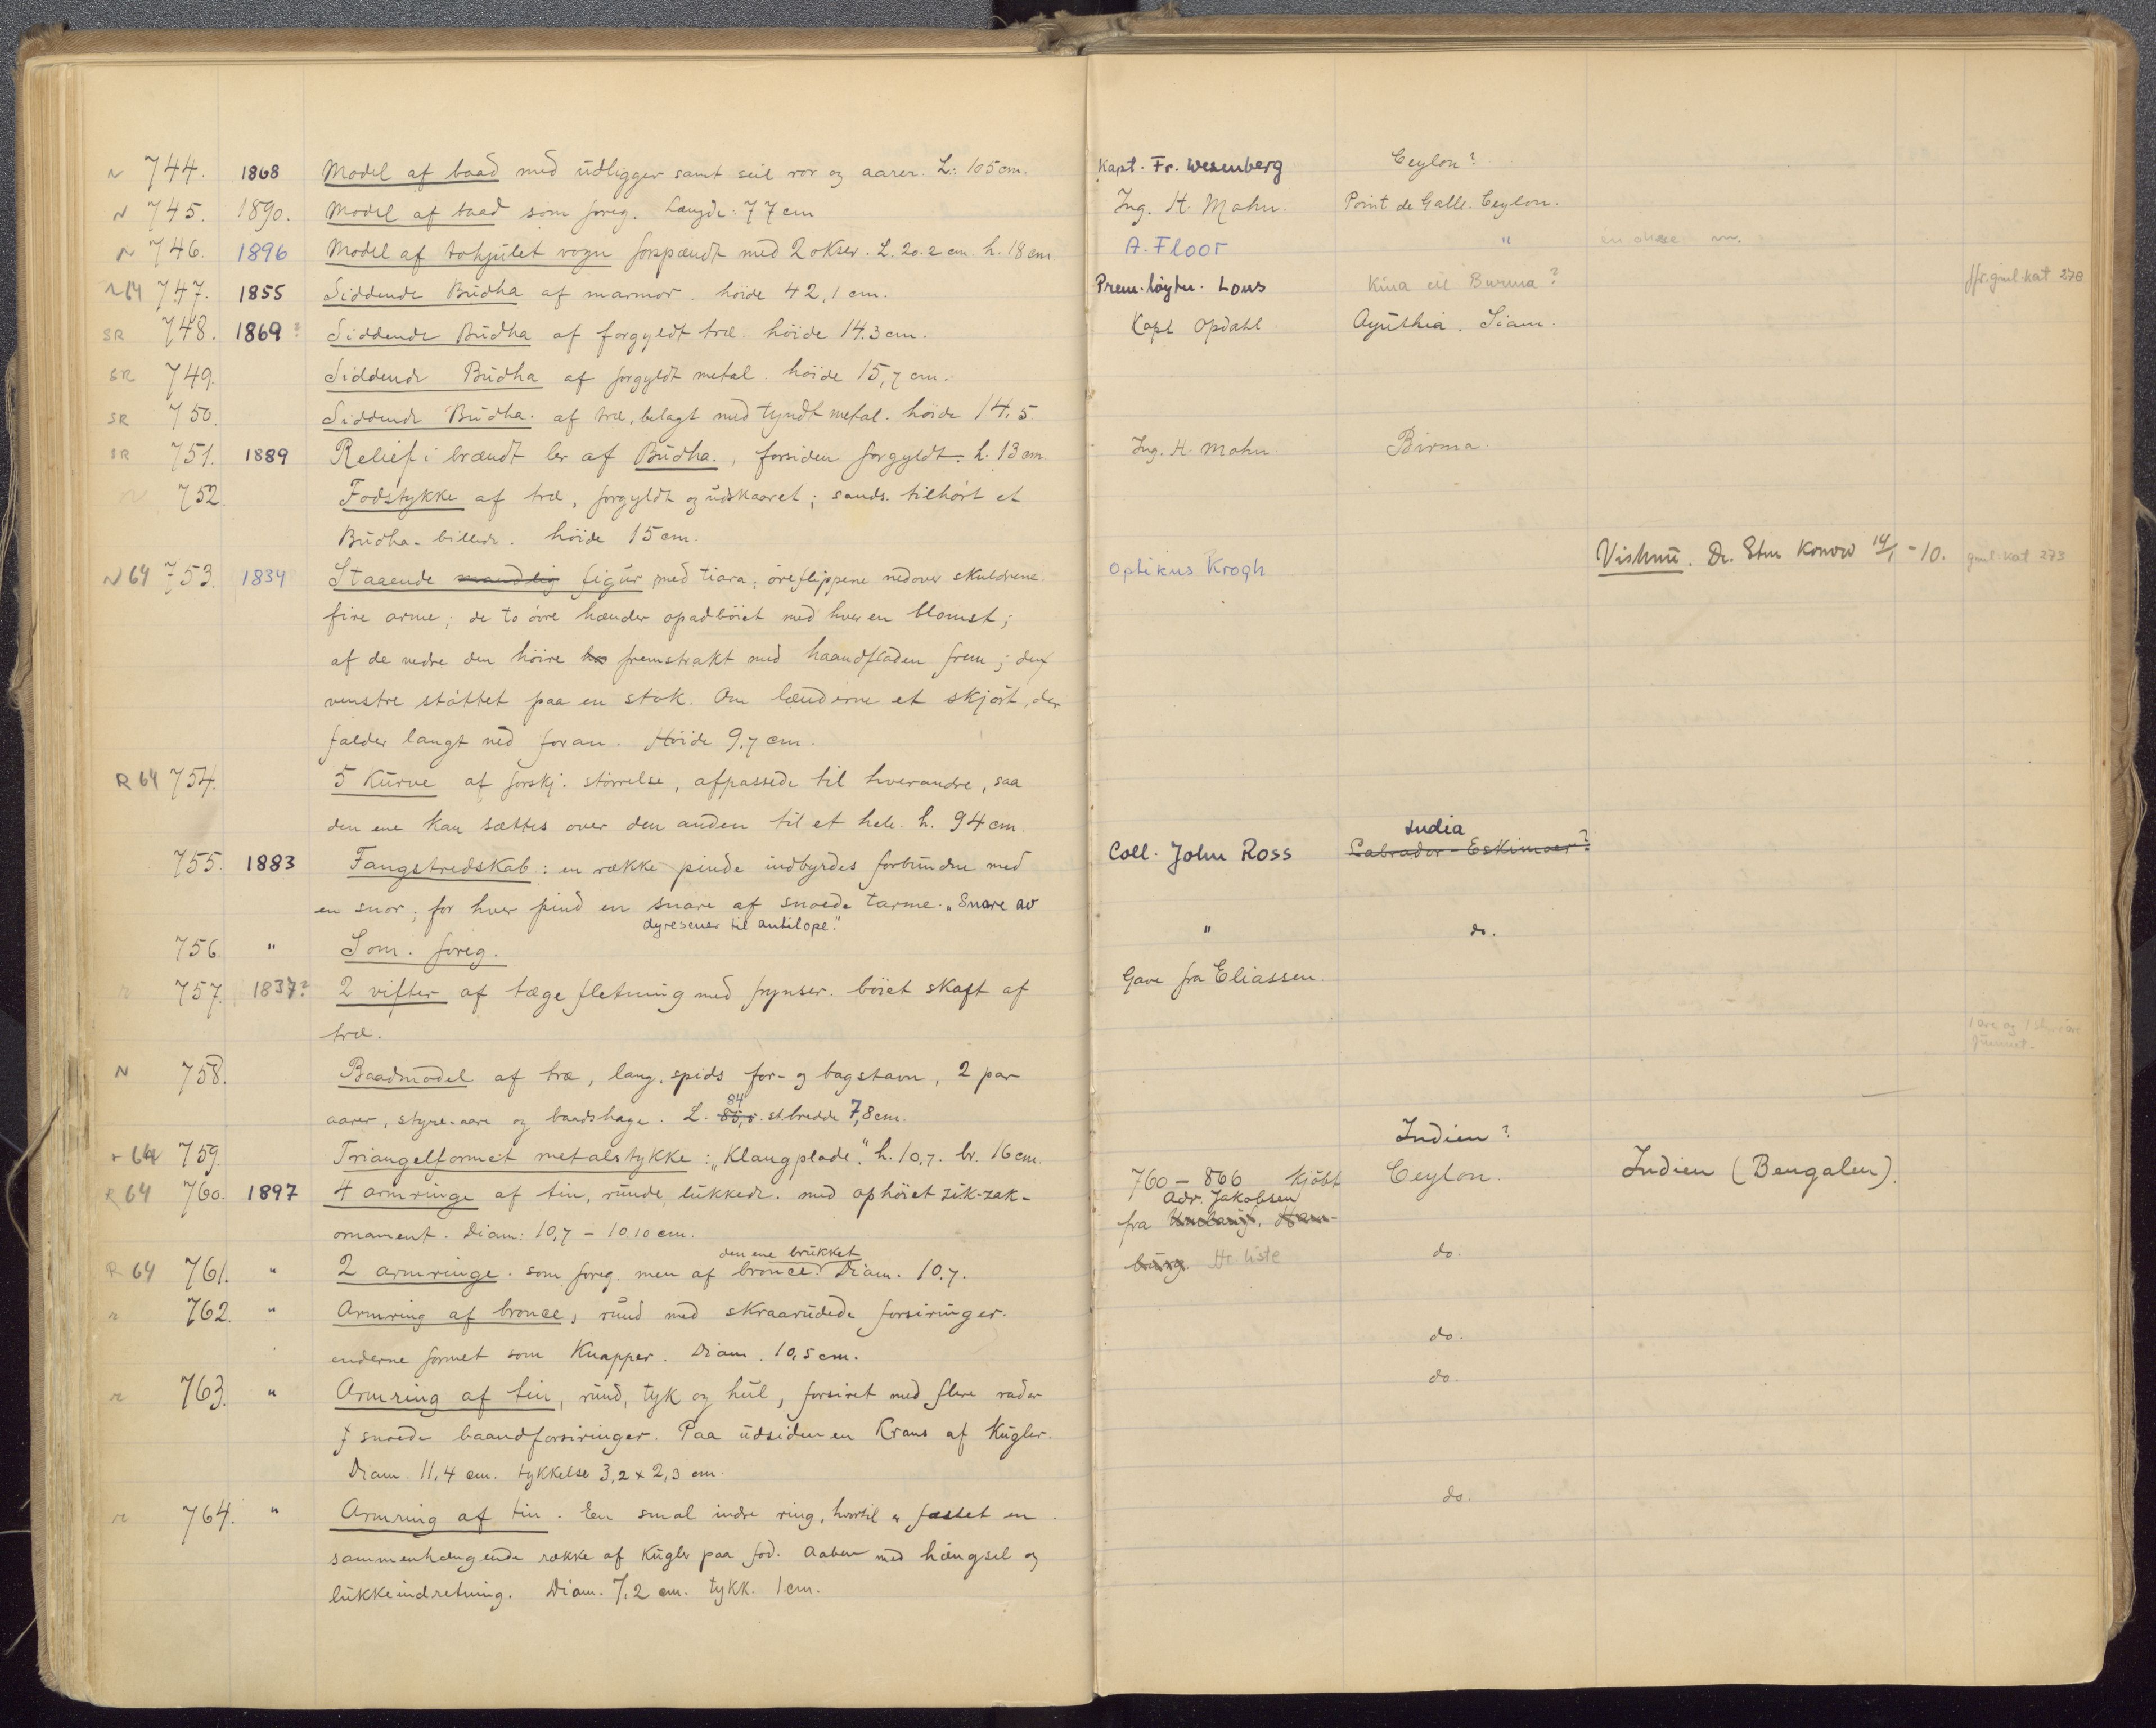 N 744. 1868 Model af baad med udligger samt seil ror og aarer. L: 105 cm. Kapt. Fr. Wesenberg Ceylon?
N 745. 1890. Model af baad som foreg. Længde: 77 cm Ing. H. Mohn. Point de Galle. Ceylon.
N 746. 1896 Model af tohjulet vogn forspændt med 2 okser. L. 20.2 cm. h. 18 cm A. Floor " en okse
N 64 747. 1855 Siddende Budha af marmor. höide 42,1 cm. Prem. løytn. Lous Kina ell Burma? jfr. gml. kat 270
SR 748. 1869? Siddende Budha af forgyldt træ. höide 14.3 cm. Kapt Opdahl. Ayuthia. Siam.
SR 749. Siddende Budha af forgyldt metal. höide 15,7 cm.
SR 750. Siddende Budha. af træ, belagt med tyndt metal. höide 14.5
SR 751. 1889 Relief i brændt ler af Budha., forsiden forgyldt. h. 13 cm Ing. H. Mohn. Birma.
N 752. Fodstykke af træ, forgyldt og udskaaret; sands. tilhört et
Budha-billede. höide 15 cm.
N 64 753. 1834 Staaende mandlig figur med tiara; öreflippene nedover skuldrene. Optikus Krogh Vishnu. Dr. Sten Konow 14/1 - 10. gml. kat 273
fire arme; de to övre hænder opadböiet med hver en blomst;
af de nedre den höire ha fremstrakt med haandfladen frem; den
venstre stöttet paa en stok. Om lænderne et skjört, der
falder langt ned foran. Höide 9.7 cm.
R 64 754. 5 Kurve af forskj. störrelse, afpassede til hverandre, saa
den ene kan sættes over den anden til et hele. h. 94 cm.
India
755. 1883 Fangstredskab: en række pinde indbyrdes forbundne med Coll. John Ross Labrador-Eskimoer?
en snor; for hver pind en snare af snoede tarme. "Snare av
dyresener til antilope."
756. " Som. foreg. " do.
r 757. 1837? 2 vifter af tægefletning med frynser. böiet skaft af Gave fra Eliassen.
træ.
1 åre og 1 styreåre
N 758. Baadmodel af træ, lang, spids for- og bagstavn, 2 par
84
aarer, styre-aare og baadshage. L. st. bredde 7,8 cm.
r 64 759. Triangelformet metalstykke: "Klangplade". h. 10,7. br. 16 cm. Indien?
R 64 760. 1897 4 armringe af tin, runde, lukkede. med ophöiet zik-zak- 760 - 866 kjöbt Ceylon. Indien (Bengalen).
Adr. Jakobsen
ornament. Diam: 10,7 - 10.10 cm. fra Umlauff, Ham-
den ene brukket
R 64 761. " 2 armringe. som foreg. men af bronce. Diam. 10.7. burg. Hr. liste do.
r 762. " Armring af bronce, rund med skraarudede forsiringer.
enderne formet som Knapper. Diam. 10,5 cm. do.
r 763. " Armring af tin, rund, tyk og hul, forsiret med flere rader do.
f snoede baandforsiringer. Paa udsiden en Krans af Kugler.
Diam. 11,4 cm. tykkelse 3,2 x 2,3 cm.
r 764. " Armring af tin. En smal indre ring, hvortil er fæstet en do.
sammenhængende række af Kugler paa fod. Aaben med hængsel og
lukkeindretning. Diam. 7,2 cm. tykk. 1 cm.